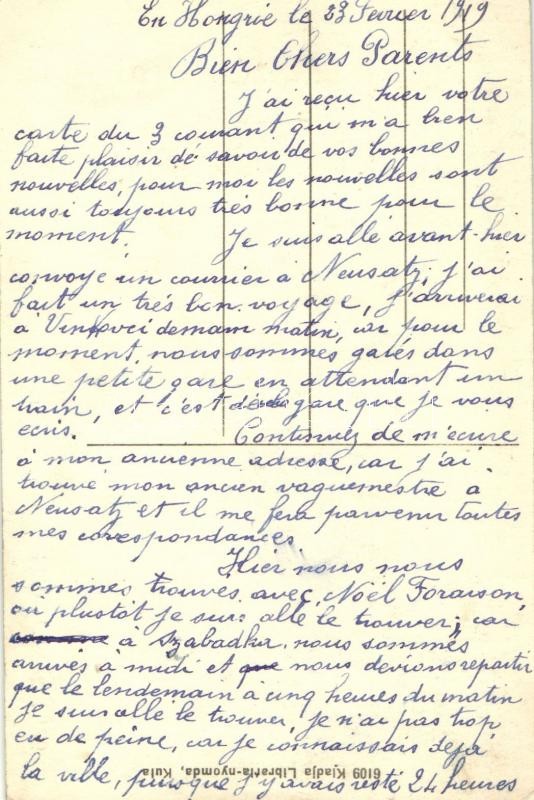 En Hongrie le 23 Fevrier 1919
Bien Chers Parents
J'ai reçu hier votre
carte du 3 courant qui m'a bien
faite plaisir de savoir de vos bonnes
nouvelles, pour moi les nouvelles sont
aussi toujours très bonne pour le
moment.
Je suis allé avant-hier
convoyé un courrier à Neusatz, j'ai
fait un très bon voyage, j'arriverai
à Vinkovci demain matin, car pour le
moment, nous sommes garés dans
une petite gare en attendant un
train, et c'est de la gare que je vous
ecris.
Continuéz de m'ecrire
à mon ancienne adresse, car j'ai
trouvé mon ancien vaguemestre à
Neusatz et il me fera parvenir toutes
mes correspondances
Hier nous nous
sommes trouvés avec Noël Foraison,
ou plustôt je suis allé le trouver; car
à Szabadka nous sommes
arrivés à midi et que nous devions repartir
que le lendemain à cinq heures du matin
je suis allé le trouver, je n'ai pas trop
eu de peine, car je connaissais dejà
la ville, puisque j'y avais resté 24 heures
6109 Kiadja Libraria-nyomda, Kula